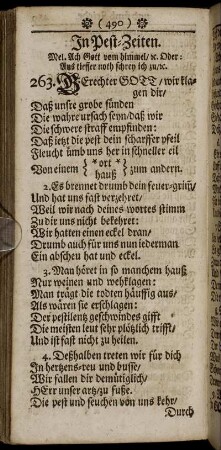 (490)
In Pest-Zeiten.
Mel. Ach Gott vom himmel/ ꝛc. Oder:
Aus tieffer noth schrey ich zu/ꝛc.
263. GErechter GOTT/ wir kla-
gen dir/
Daß unsre grobe sünden
Die wahre ursach seyn/daß wir
Die schwere straff empfinden:
Daß jetzt die pest dein scharffer pfeil
Fleucht ümb uns her in schneller eil
Von einem { *ort * hauß } zum andern.
2. Es brennet drumb dein feuer-grim̃/
Und hat uns fast verzehret/
Weil wir nach deines wortes stimm
Zu dir uns nicht bekehret:
Wir hatten einen eckel dran/
Drumb auch für uns nun iederman
Ein abscheu hat und eckel.
3. Man höret in so manchem hauß
Nur weinen und wehklagen:
Man trägt die todten häuffig aus/
Als wären sie erschlagen:
Der pestilentz geschwindes gifft
Die meisten leut sehr plötzlich trifft/
Und ist fast nicht zu heilen.
4. Deßhalben treten wir für dich
In hertzens-reu und busse/
Wir fallen dir demütiglich/
HErr unser artz/zu fusse.
Die pest und seuchen von uns kehr/
Durch